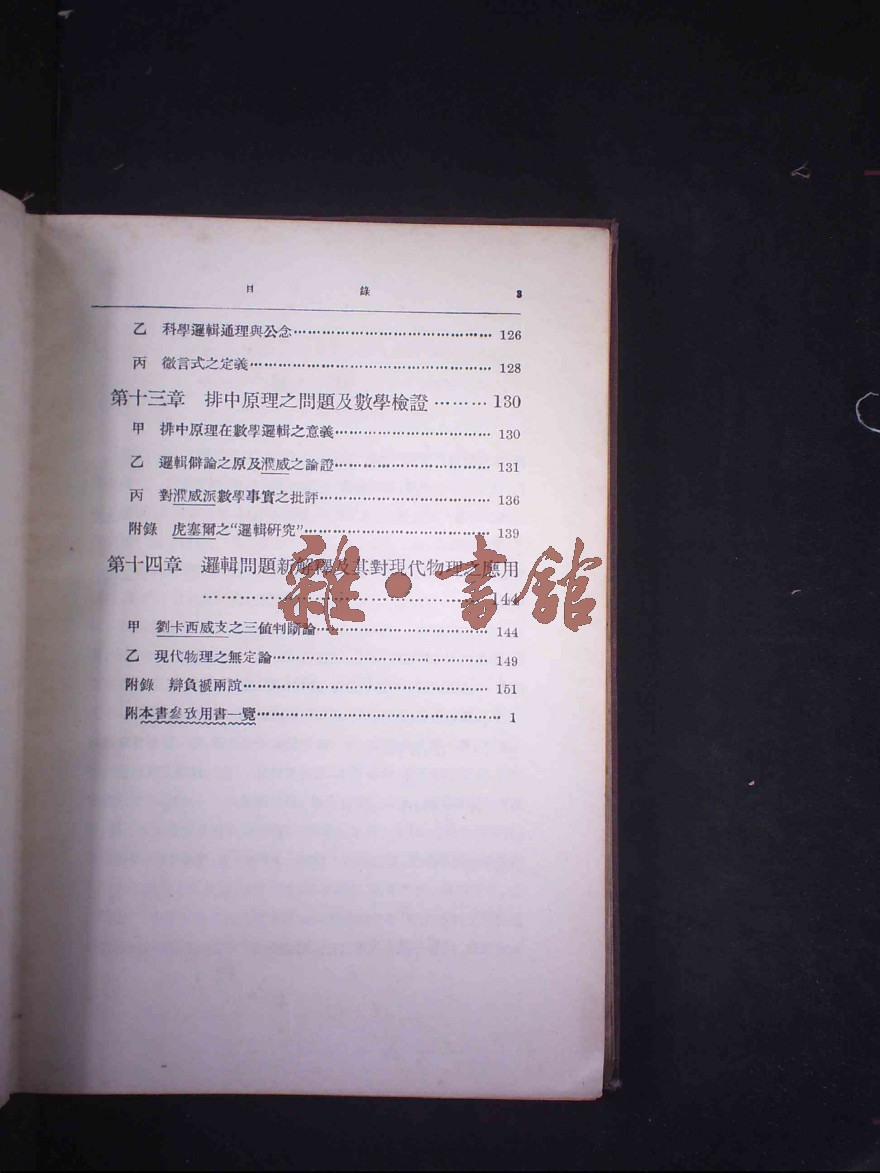 目 錄 3
乙 科學邏輯通理與公念……………………………………… 126
丙 徵言式之定義……………………………………………… 128
第十三章 排中原理之問題及數學檢證……… 130
甲 排中原理在數學邏輯之意義……………………………… 130
乙 邏輯僻論之原及濮威之論證……………………………… 131
丙 對濮威派數學事實之批評………………………………… 136
附錄 虎塞爾之“邏輯研究”…………………………………… 139
第十四章 邏輯問題新解釋及其對現代物理之應用
………………………………………… 144
甲 劉卡西威支之三値判斷論………………………………… 144
乙 現代物理之無定論………………………………………… 149
附錄 辯負褫兩誼……………………………………………… 151
附本書叅攷用書一覽……………………………………………… 1
雜·書館